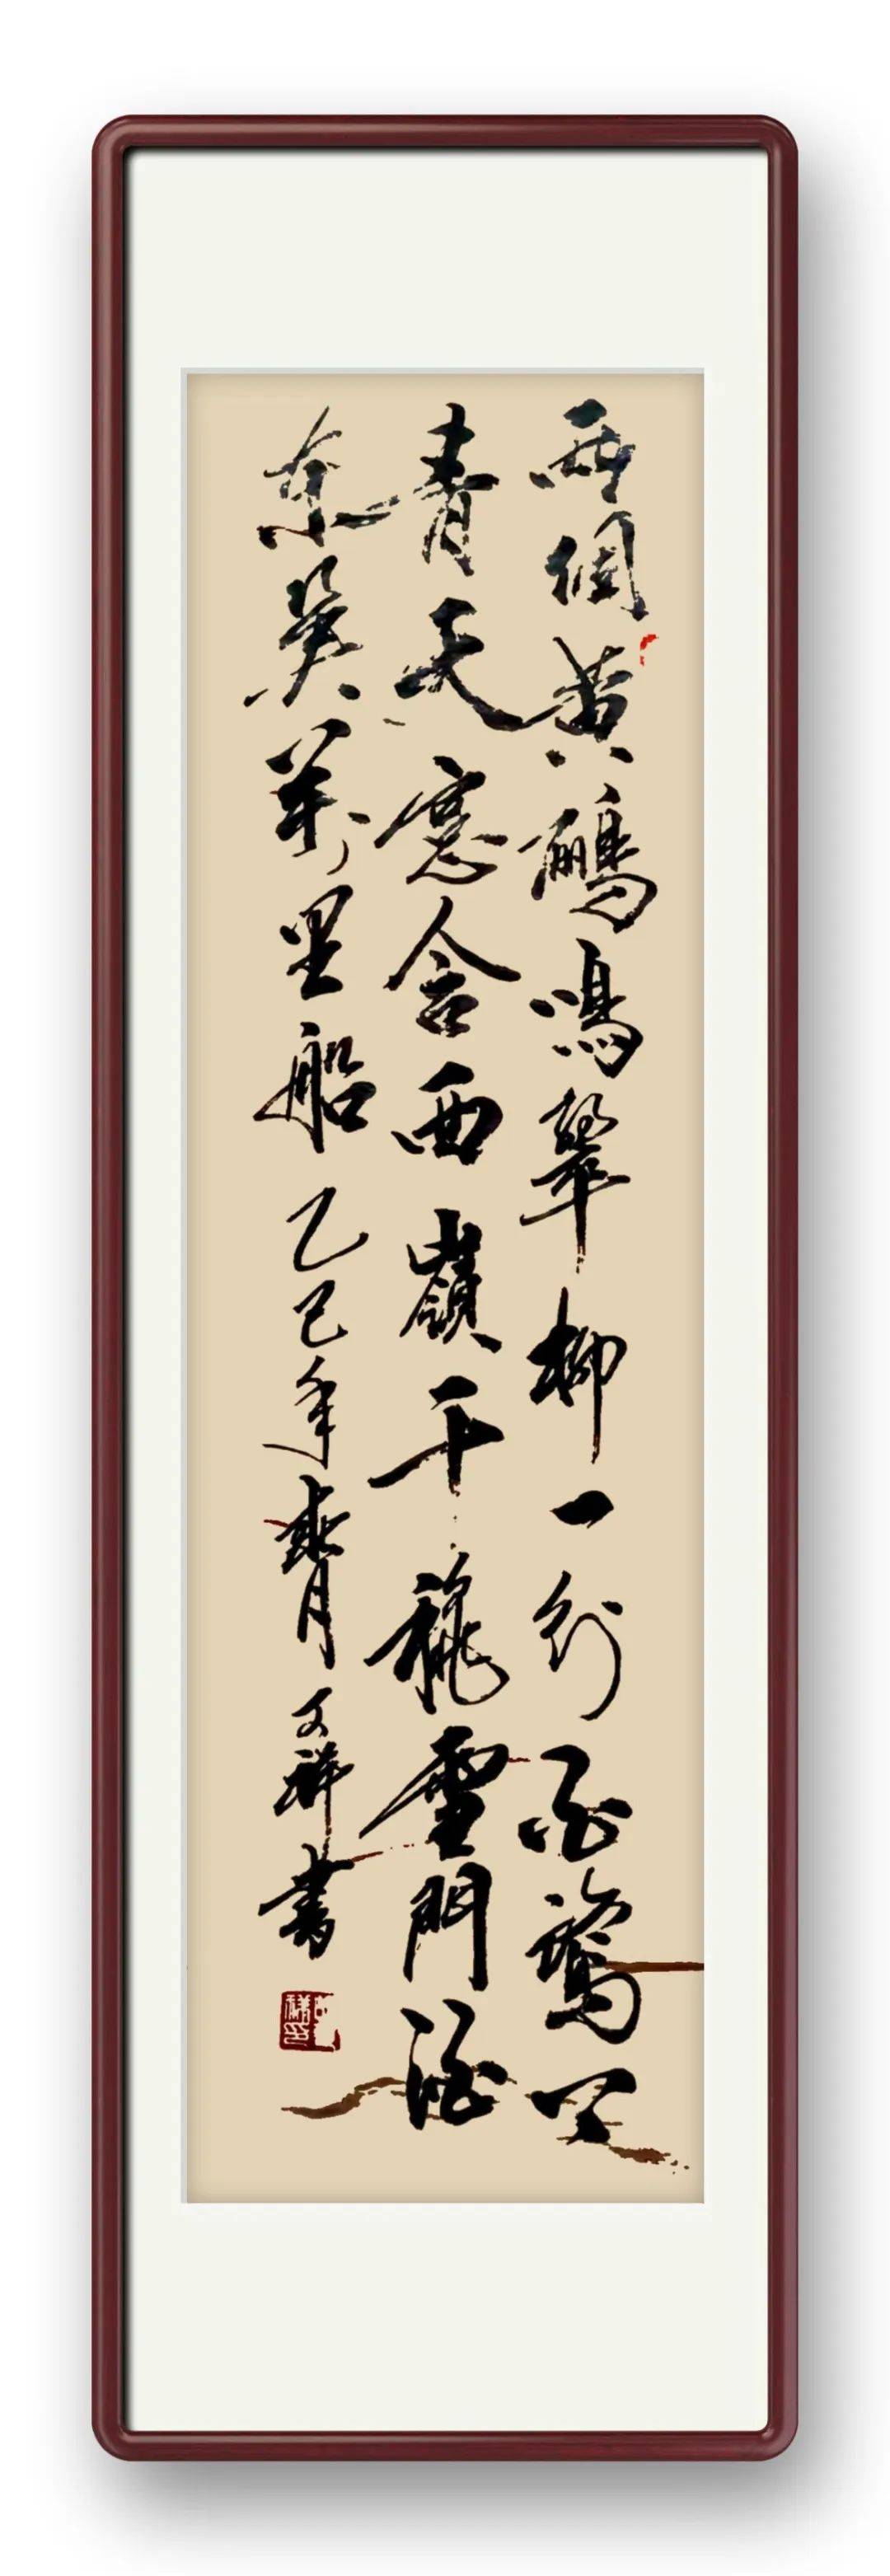 兩個黃鸝鳴翠柳一行白鷺上
青天窓含西嶺千穐雪門泊
東吳萬里船乙巳年春月文祥書